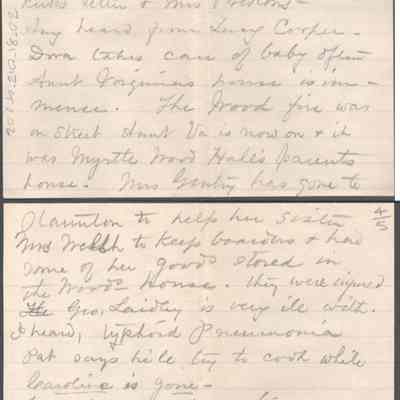 letter & Mrs Prestons -
Ivy heard from Lucy Cooper -
Dora takes care of baby often
Aunt Virginias house is im -
mence. The Wood fire was
on street Aunt Va is now on & it
was Myrtle Wood Hales parents
house. Mrs Gentry has gone to
Staunton to help her sister
Mrs Welsh to keep boarders & had
some of her goods stored in
the Woods House. they were injured
Geo, Laidley is very ill with.
I heard, typhoid Pneumonia
Pat says he'll try to cook while
Caroline is gone -
4/5